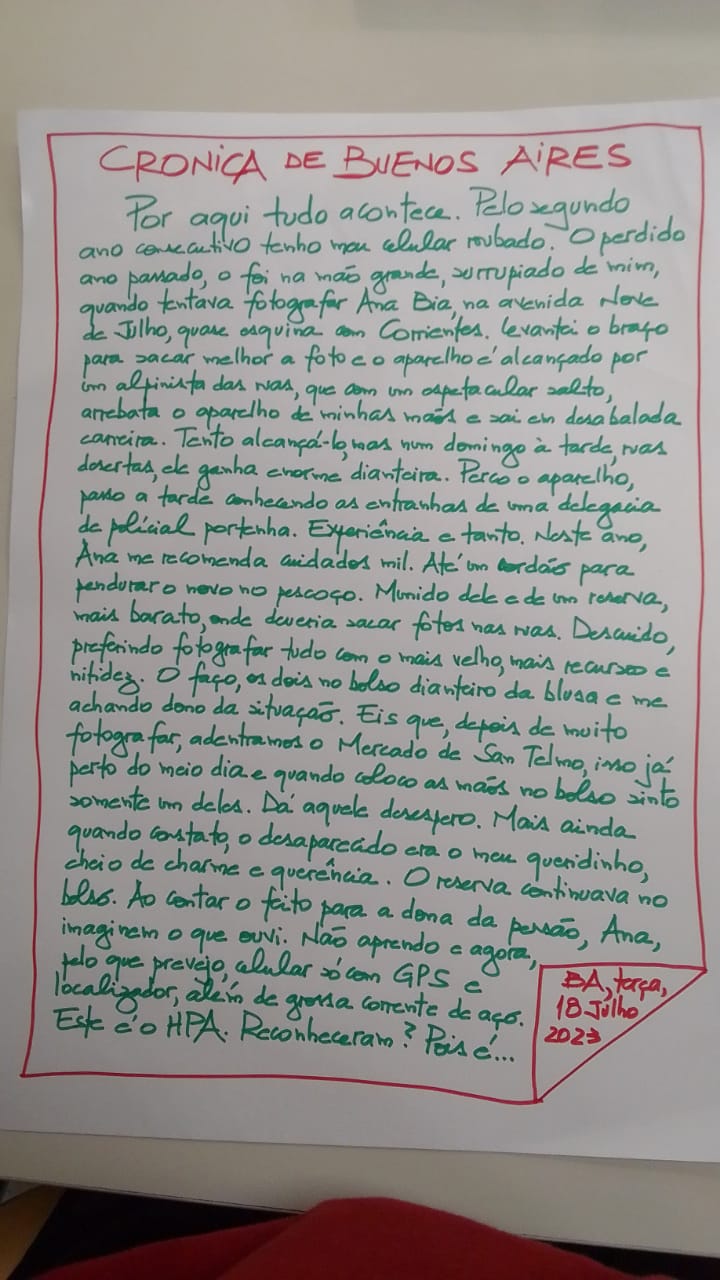 CRONICA DE BUENOS AIRES
Por aqui tudo acontece. Pelo segundo
ano consecutivo tenho meu celular roubado. O perdido
ano passado, o foi na mão grande, surrupiado de mim,
quando tentava fotografar Ana Bia, na avenida Nove
de Julho, quase esquina com Corrientes. Levantei o braço
para sacar melhor a foto e o aparelho é alcançado por
um alpinista das ruas, que com um espetacular salto,
arrebata o aparelho de minhas mãos e sai em desabalada
carreira. Tento alcançá-lo, mas num domingo à tarde, ruas
desertas, ele ganha enorme dianteira. Perco o aparelho,
passo a tarde conhecendo as entranhas de uma delegacia
de policial portenha. Experiência e tanto. Neste ano,
Ana me recomenda cuidados mil. Até um cordão para
pendurar o novo no pescoço. Munido dele e de um reserva,
mais barato, onde deveria sacar fotos nas ruas. Descuido,
preferindo fotografar tudo com o mais velho, mais recurso e
nitidez. O faço, os dois no bolso dianteiro da blusa e me
achando dono da situação. Eis que, depois de muito
fotografar, adentramos o Mercado de San Telmo, isso já
perto do meio dia e quando coloco as mãos no bolso sinto
somente um deles. Dá aquele desespero. Mais ainda
quando constato, o desaparecido era o meu queridinho,
cheio de charme e querência. O reserva continuava no
bolso. Ao contar o feito para a dona da pensão, Ana,
imaginem o que ouvi. Não aprendo e agora,
pelo que prevejo, celular só com GPS e
localizador, além de grossa corrente de aço.
Este é o HPA. Reconheceram? Pois é...
BA, terça,
18 Julho
2023